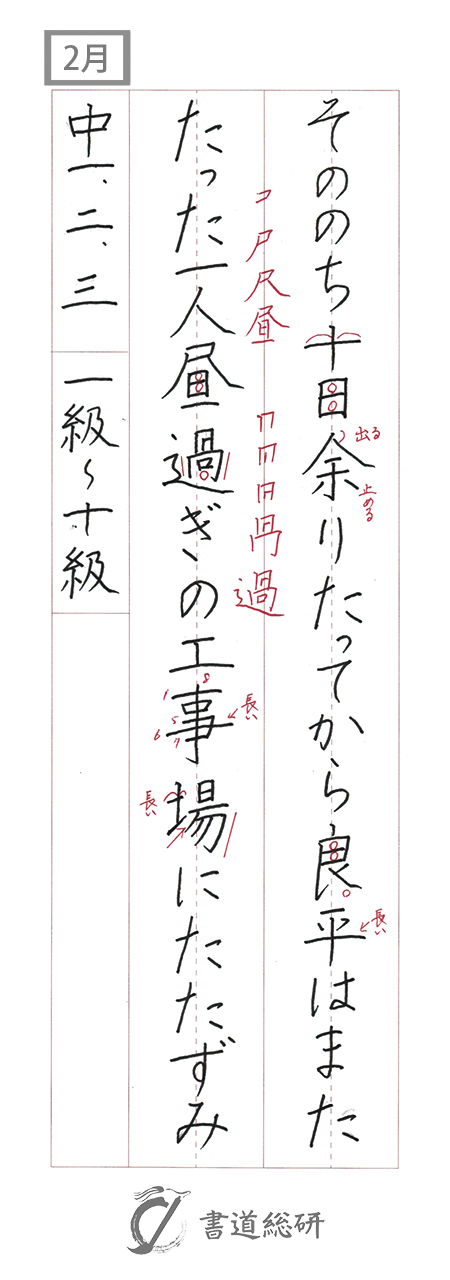 2月
そののち十日余りたってから良平はまた
出る
止める
長い
コ尸尺昼
過
たった一人昼過ぎの工事場にたたずみ
1 5 6 7 8
長い
長い
中一、二、三
一級〜十級
書道総研